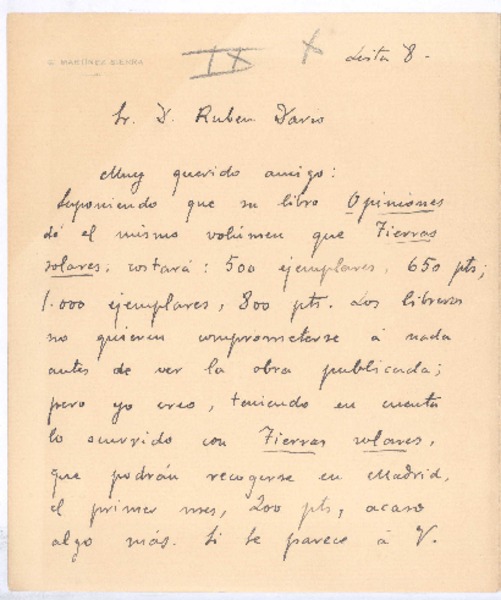 G. MARTÍNEZ SIERRA
IX X Lista 8.
Sr. D. Ruben Dario
Muy querido amigo:
Suponiendo que su libro Opiniones
dé el mismo volúmen que Tierras
solares; costará: 500 ejemplares, 650 pts;
1.000 ejemplares, 800 pts. Los libreros
no quieren comprometerse á nada
antes de ver la obra publicada;
pero yo creo, teniendo en cuenta
lo ocurrido con Tierras solares,
que podrán recogerse en Madrid,
el primer mes, 200 pts, acaso
algo más. Si le parece á V.